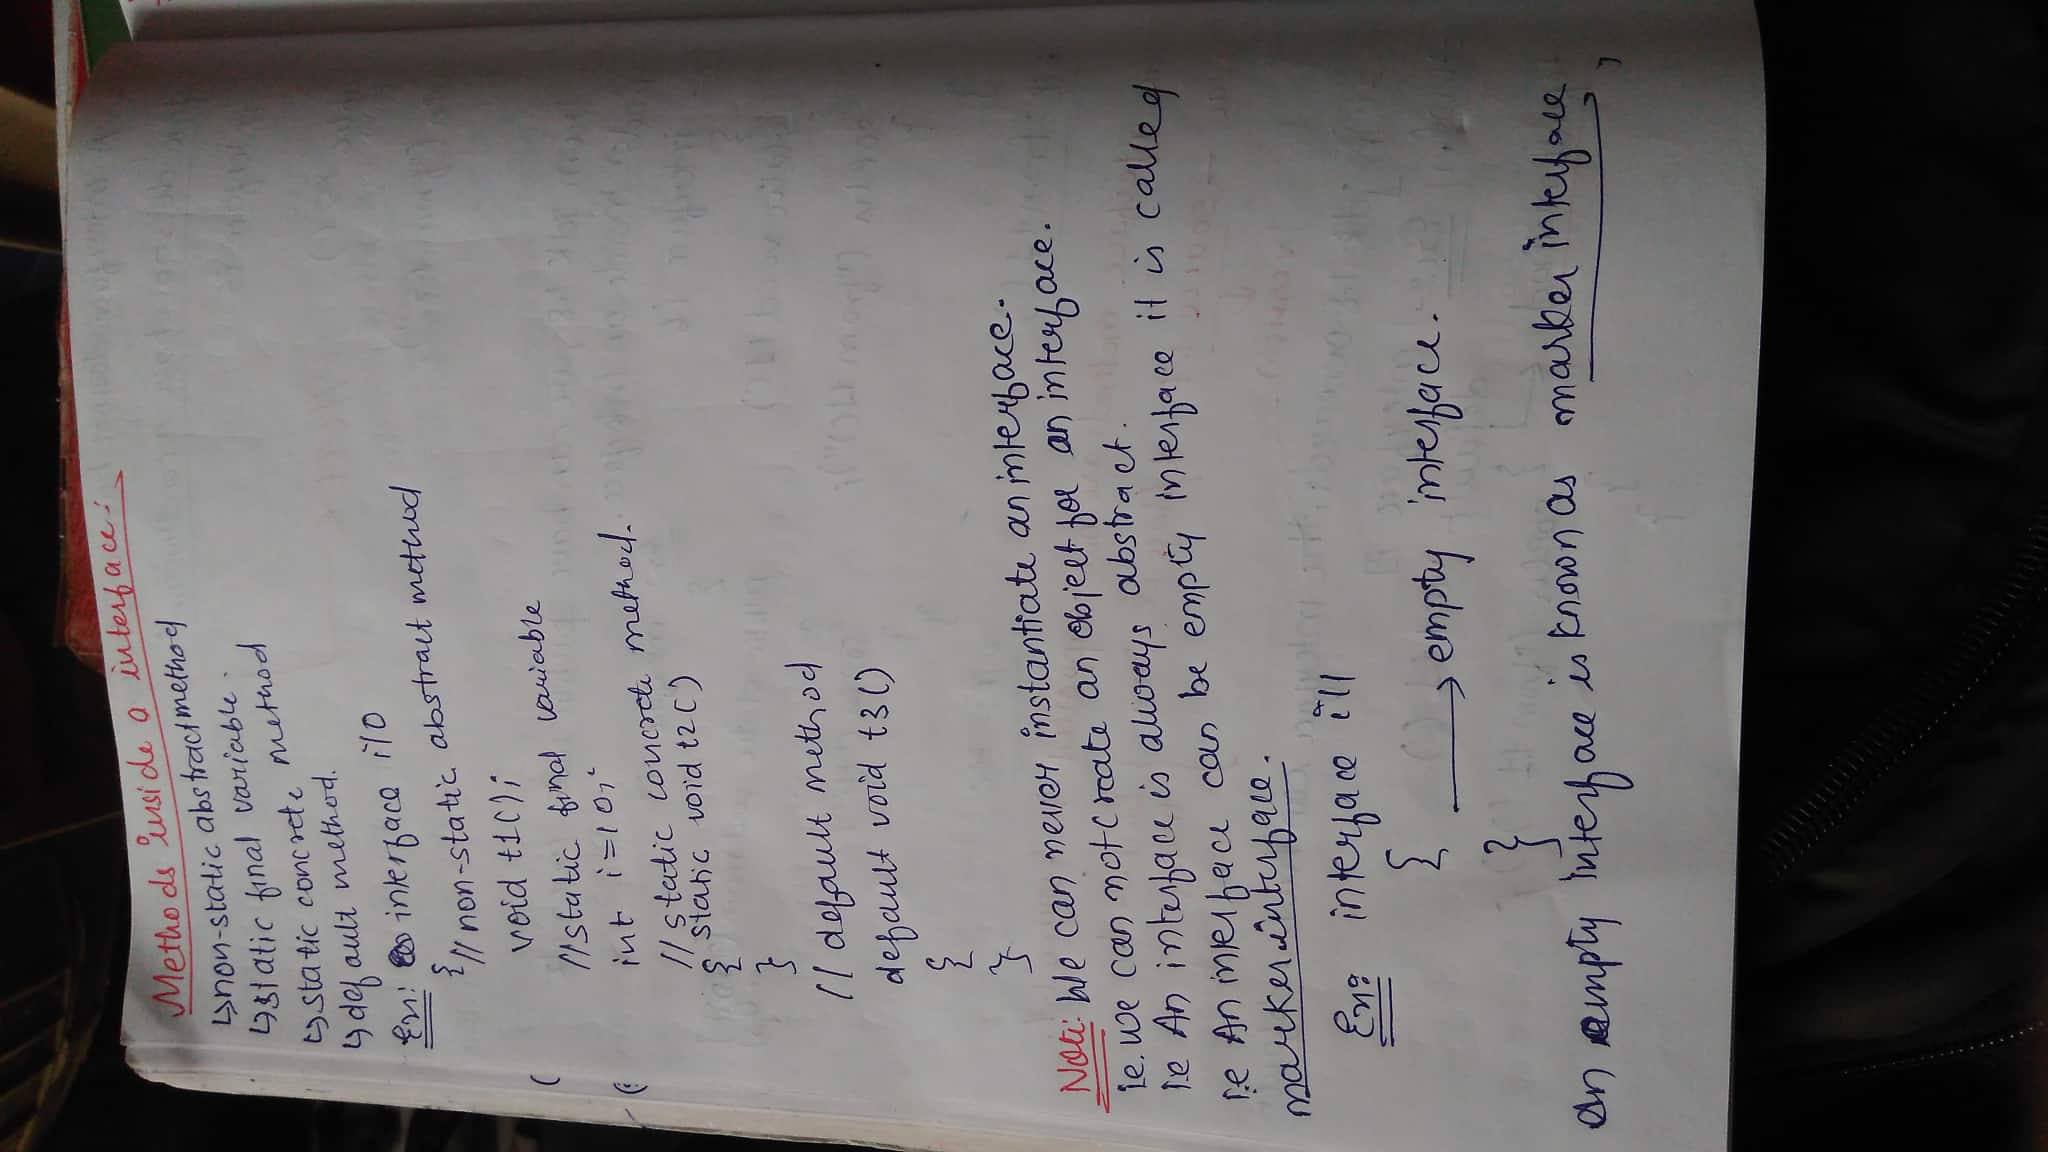 Methods inside a interface:
↳non-static abstract method
↳static final variable.
↳static concrete method
↳default method.
Ex: interface i10
{ //non-static abstract method
void t1();
//static final variable
int i=10;
//static concrete method.
static void t2()
{
}
// default method
default void t3()
{
}
Note: We can never instantiate an interface.
ie. we can not crate an object for an interface.
ie An interface is always abstract.
i.e An interface can be empty interface it is called
marker interface.
Ex: interface i11
{
→ empty interface.
}
an empty interface is known as marker interface,